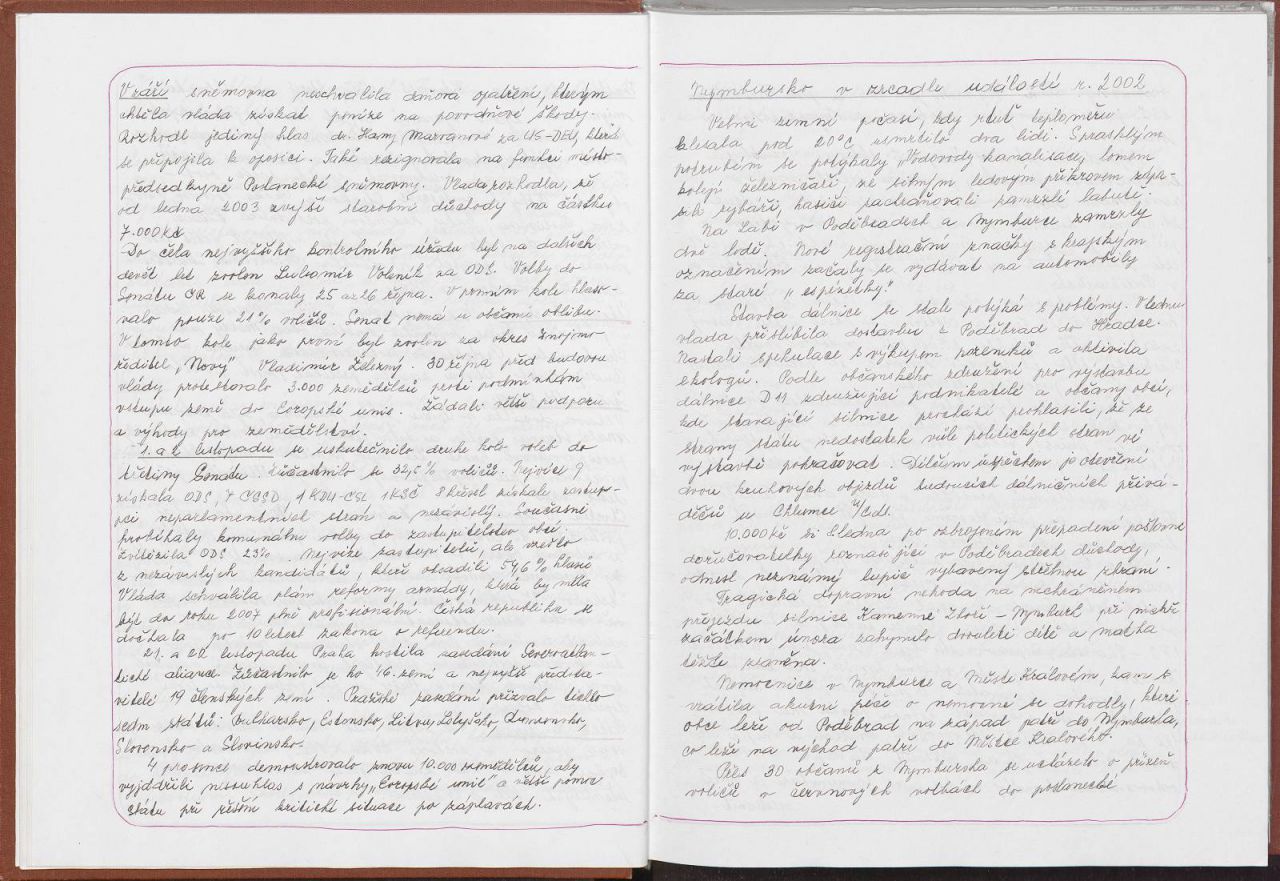 V září sněmovna neschválila daňová opatření, kterým
chtěla vláda získat peníze na povodňové škody.
Rozhodl jediný hlas dr. Hany Marvanové za US-DEU, která
se připojila k oposici. Také resignovala na funkci místo-
předsedkyně Poslanecké sněmovny. Vláda rozhodla, že
od ledna 2003 zvýší starobní důchody na částku
7.000 kč
Do čela nejvyššího kontrolního úřadu byl na dalších
devět let zvolen Lubomír Voleník za ODS. Volby do
Senátu ČR se konaly 25 až 26 října. V prvním kole hlaso-
valo pouze 21% voličů. Senát nemá u občanů oblibu.
V tomto kole jako první byl zvolen za okres Znojmo
ředitel "Novy" Vladimír Železný. 30 října před budovou
vlády protestovalo 3.000 zemědělců proti podmínkám
vstupu země do Evropské unie. Žádali větší podporu
a výhody pro zemědělství.
1. a 2. listopadu se uskutečnilo druhé kolo voleb do
třetiny Senátu. Zúčastnilo se 32,5% voličů. Nejvíce 9
získala ODS, 7 ČSSD, 1 KDU-ČSL 1 KSČ 8 křesel získali zástup-
ci neparlamentních stran a nezávislý. Současně
probíhaly komunální volby do zastupitelstev obcí.
Zvítězila ODS 23% nejvíce zastupitelů, ale vzešlo
z nezávislých kandidátů, kteří obsadili 54,6% hlasů
Vláda schválila plán reformy armády, která by měla
být do roku 2007 plně profisionální. Česká republika se
dočkala po 10 letech zákona o referendu.
21. a 22 listopadu Praha hostila zasedání Severoatlan-
tické aliance. Zúčastnilo se ho 46 zemí a nejvyšší předsta-
vitelé 19 členských zemí. Pražské zasedání přizvalo těchto
sedm států: Bulharsko, Estonsko, Litvu, Lotyšsko, Rumunsko,
Slovensko a Slovinsko.
4 prosince demonstrovalo znovu 10.000 zemědělců, aby
vyjádřili nesouhlas s návrhy "Evropské unie" a větší pomoc
státu při řešení kritické situace po záplavách.
Nymbursko v zrcadle událostí r. 2002
Velmi zimní počasí, kdy rtuť teploměru
klesala pod 20°C usmrtilo dva lidi. S prasklým
potrubím se potýkaly Vodovody kanalisace, lomem
kolejí železničáři, se silným ledovým příkrovem zápa-
sili rybáři, hasiči zachraňovali zamrzlé labutě.
Na Labi v Poděbradech a Nymburce zamrzly
dvě lodě. Nové registrační značky s krajským
označením začaly se vydávat na automobily
za staré "espézetky."
Stavba dálnice se stále potýká s problémy. V lednu
vláda přislíbila dostavbu z Poděbrad do Hradce.
Nastali spekulace s výkupem pozemků a aktivita
ekologů. Podle občanského sdružení pro výstavbu
dálnice D11 sdružující podnikatelé a občany obcí,
kde stávající silnice prochází prohlásili, že ze
strany státu nedostatek vůle politických stran ve
výstavbě pokračovat. Dílčím úspěchem je otevření
dvou kruhových objezdů budoucích dálničních přivá-
děčů u Chlumce n/Cdl.
10.000 kč si Sledna po ozbrojeném přepadení poštovní
doručovatelky roznášející v Poděbradech důchody,
odnesl neznámý lupič vybavený střelnou zbraní.
Tragická dopravní nehoda na nechráněném
přejezdu silnice Kamenné Zboží – Nymburk při nichž
začátkem února zahynulo dvouleté dítě a matka
těžce zraněna.
Nemocnice v Nymburce a Městci Králové, kam s
vrátila akutní péče o nemocné se dohodly, které
obce leží od Poděbrad na západ patří do Nymburka,
co leží na východ patří do Městce Králového.
Přes 30 občanů z Nymburska se ucházelo o přízeň
voličů v červnových volbách do poslanecké